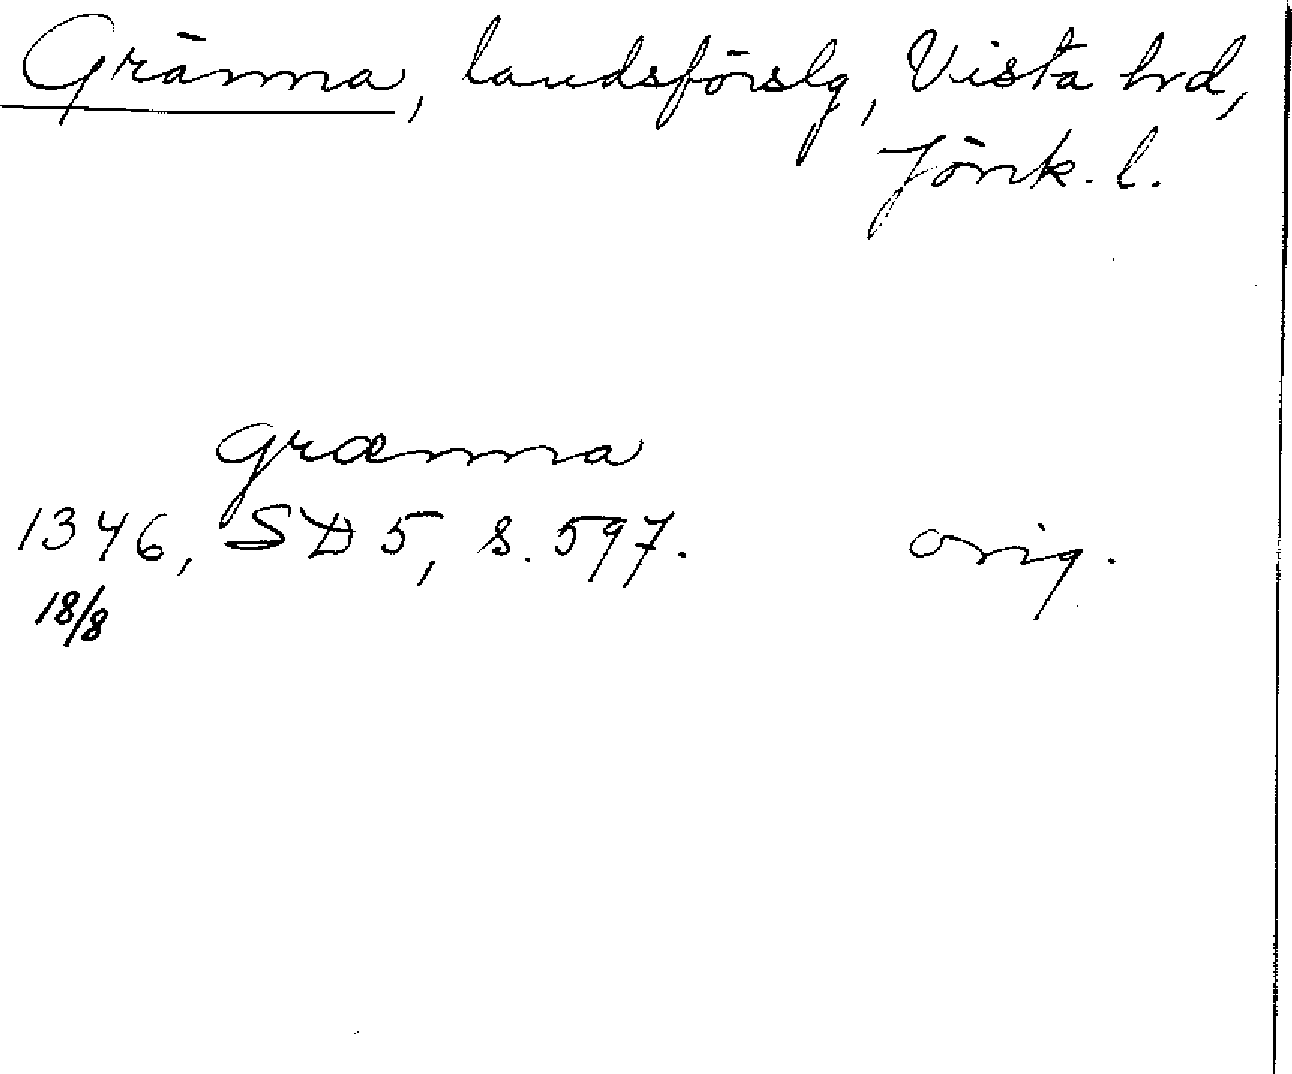 Gränna, landsförslg, Vista hrd,
Jönk. l.
grænna
1346, SD 5, s. 597. orig.
18/8